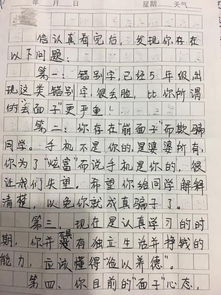 年 月 日 星期 天气
信认真看完后，发现你存在
以下问题：
第一：错别字已经5年级出
现这类错别字，很丢脸，比你所谓
的"丢面子"更严重！
第二：你存在"面子"而欺骗
同学。手机不是你的，是婆婆所有，
你为了"炫富"而说手机是你的，很
让我们失望。希望你给同学解释
清楚，以免你就成真骗子了。
第三，现在是认真学习的时
期，你并没有独立生活并挣钱的
能力，应该懂得"俭以养德"。
第四，你目前的"面子"心态，